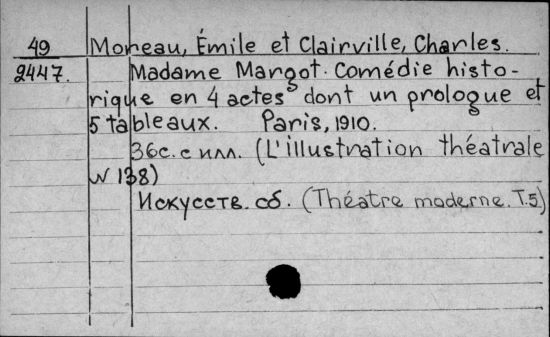 49 Moreau, Émile et Clairville, Charles.
2447. Madame Margot. Comédie histo-
rique en 4 actes dont un prologue et
5 tableaux. Paris, 1910.
36с. с илл. (L'illustration théatrale
N 138)
Искусств. сб. (Théatre moderne. T.5)